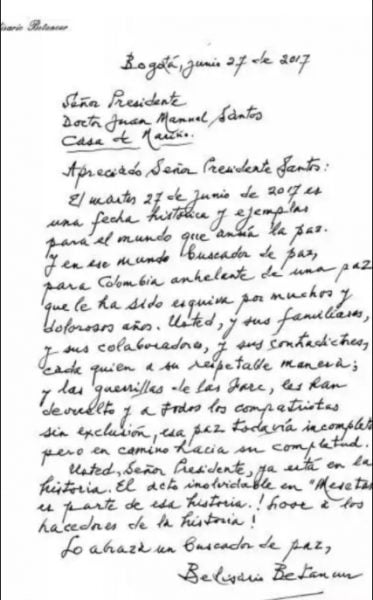 Belisario Betancur
Bogotá, junio 27 de 2017
Señor Presidente
Doctor Juan Manuel Santos
Casa de Nariño.
Apreciado Señor Presidente Santos:
El martes 27 de junio de 2017 es
una fecha histórica y ejemplar
para el mundo que ansía la paz.
Y en ese mundo buscador de paz,
para Colombia anhelante de una paz
que le ha sido esquiva por muchos y
dolorosos años. Usted, y sus familiares,
y sus colaboradores, y sus contradictores,
cada quien a su respetable manera;
y las guerrillas de las Farc, les han
devuelto y a todos los compatriotas
sin exclusión, esa paz todavía incompleta
pero en camino hacia su completud.
Usted, Señor Presidente, ya está en la
historia. El acto inolvidable en "Mesetas
es parte de esa historia. ! Loor a los
hacedores de la historia !
Lo abraza un buscador de paz,
Belisario Betancur